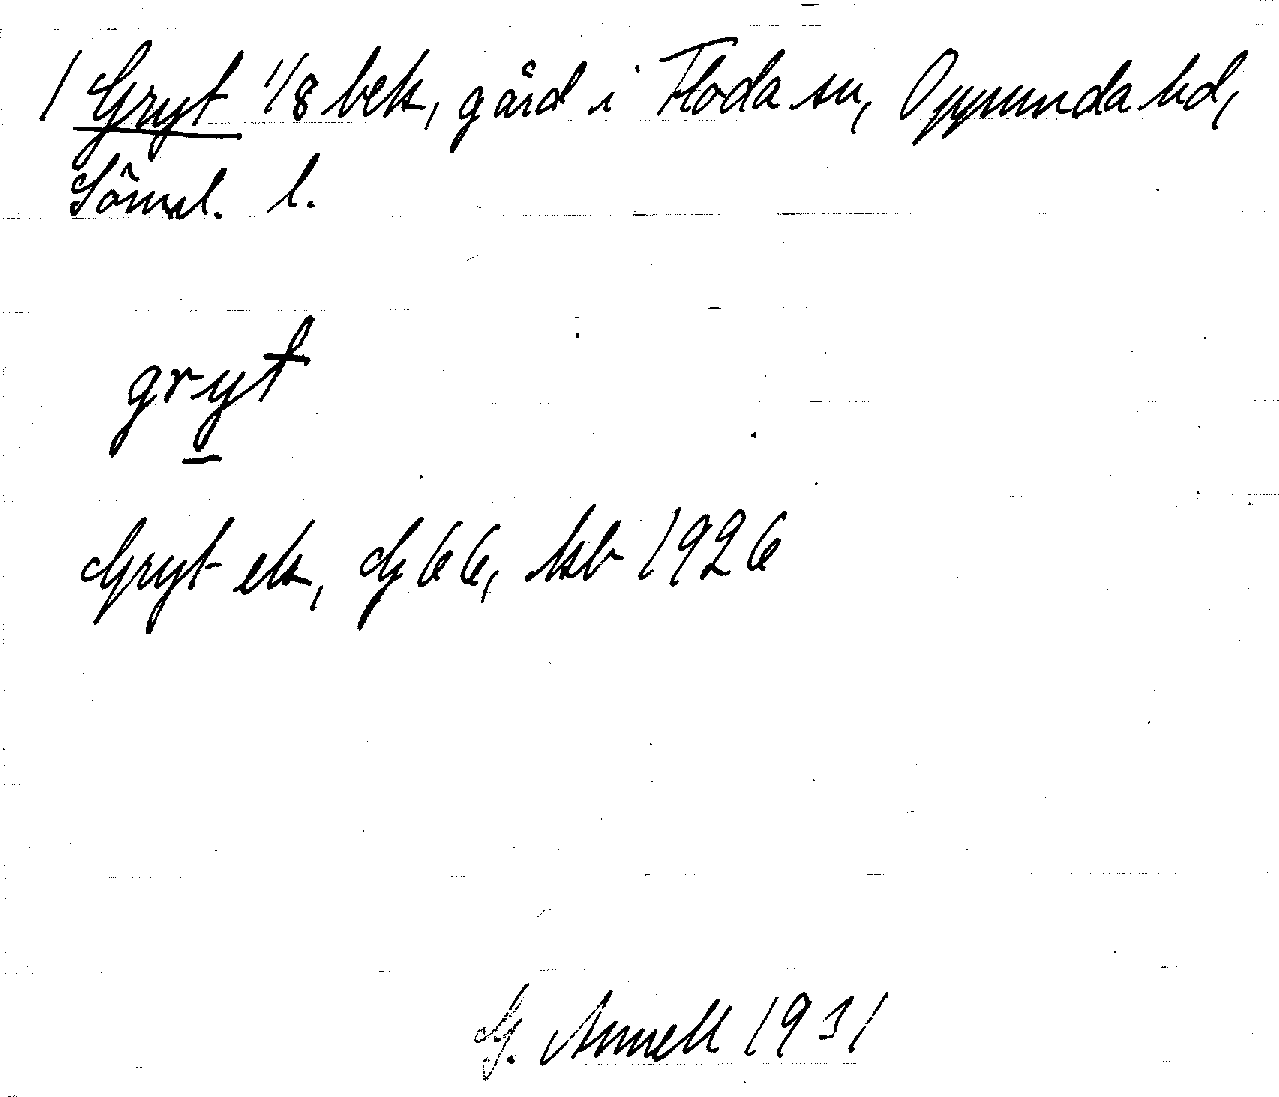 1 Gryt 1/8 bek, gård i Floda sn, Oppunda hd,
Söml. l.
gryt
Gryt ek, G 66, kb 1926
G. Annell 1931